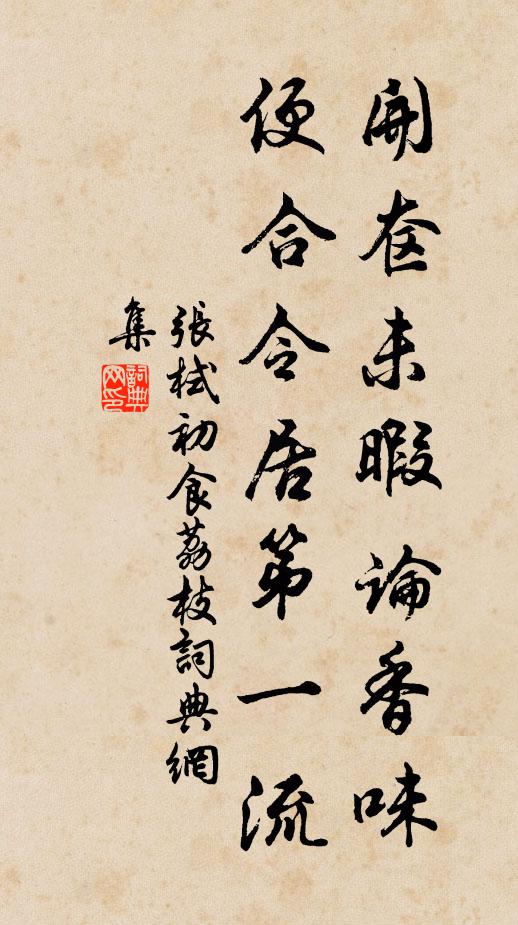 開奩未暇論香味
便合令居第一流
張栻初食荔枝詞典網
集
詞典
网印